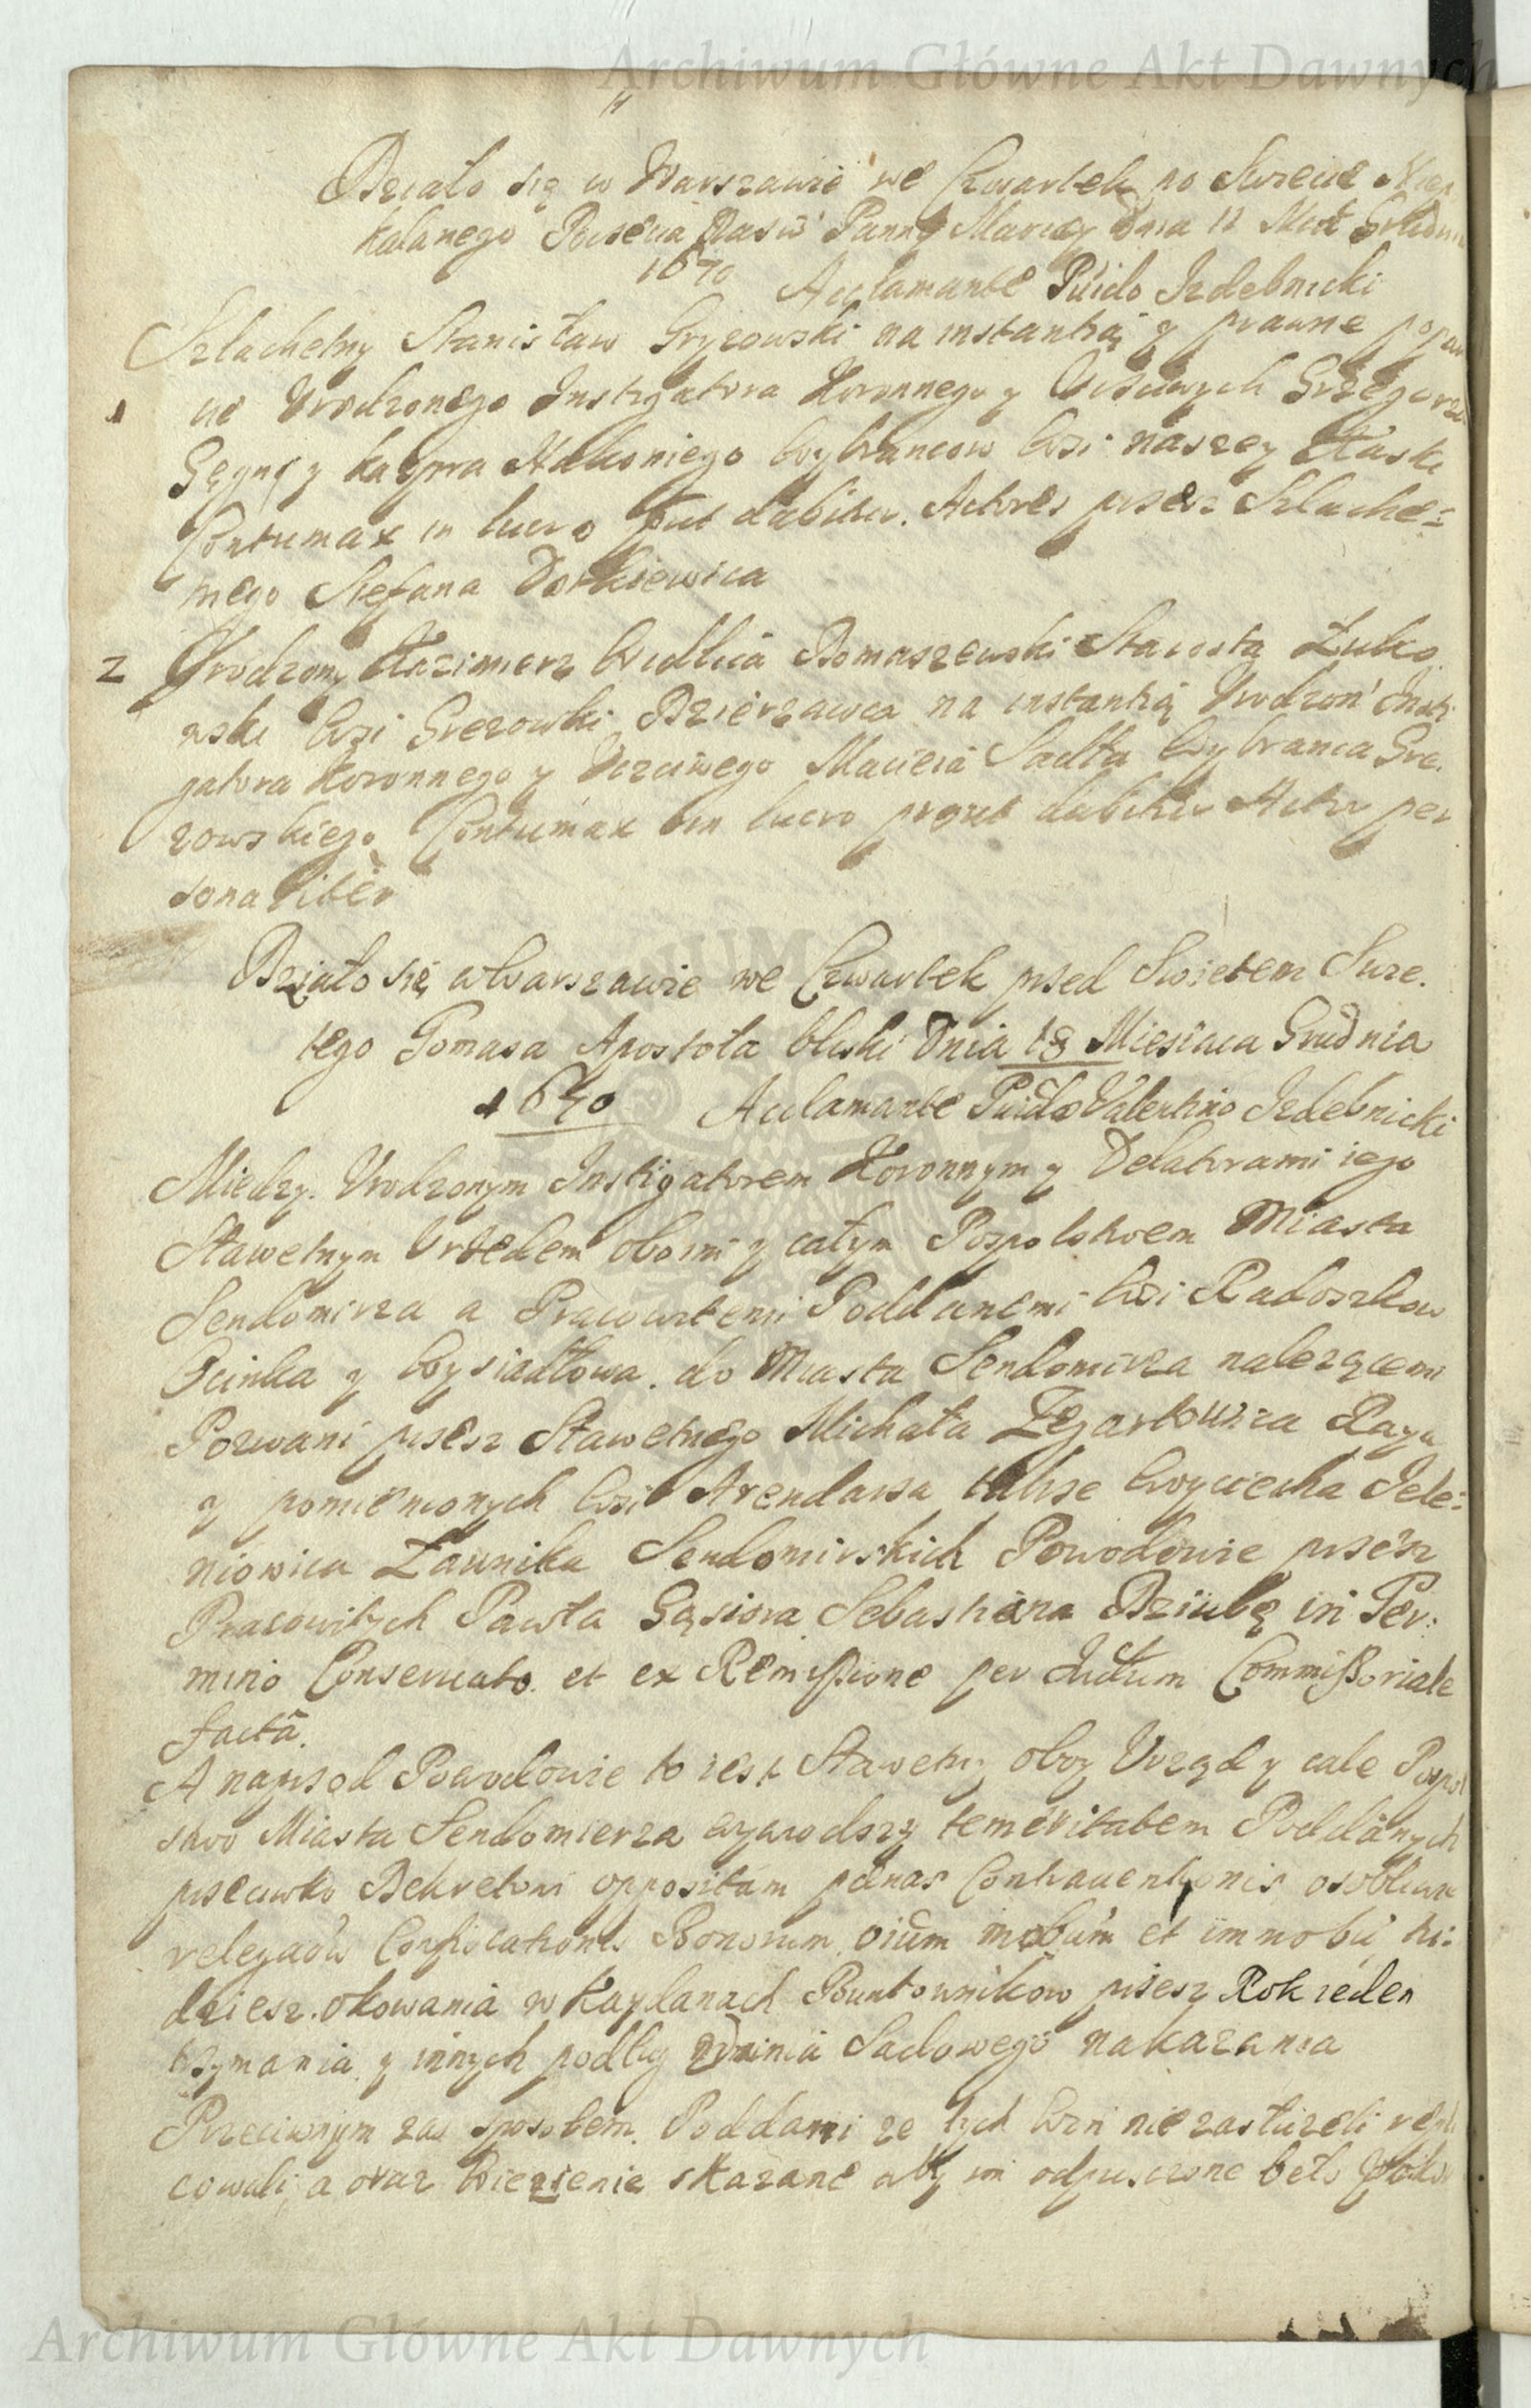 Archiwum Główne Akt Dawnych
Działo się w Warszawie we Czwartek po Swięcie Niep
kalanego Poczęcia Nasw Panny Mariey Dnia 11 Grudnia
1670 Acclamante Pudo Izdebnicki
Szlachetny Stanisław Gryzowski na instantią y prawne popar
1
cie Vrodzonego Instigatora Koronnego y Vczciwych Grzegorza
y Kazpra wybrancow wsi naszey
Contumax in lucro put dabitur. Actores przez Szlache=
tnego Stefana
2 Vrodzony Kazimierz Domaszewski Starosta Łuko
wski wsi Grezowki Dzierzawca na instantią Vrodzon Insti
gatora Koronnego y Vczciwego Macieia Sadła wybranca Gre.
zowskiego Contumax in lucro prout dabitur Actor per
sonaliter
Działo się w Warszawie we Czwartek przed Swietem Swię.
tego Tomasa Apostoła bliski Dnia 18 Miesiąca Grudnia
1670 Acclamante Pudo Valentino Izdebnicki
Miedzy Vrodzonym Instigatorem Koronnym y Delatorami iego
Sławetnym Vrzedem oboim y całym Pospolstwem Miasta
Sendomirza a Pracowitemi Poddanemi wsi Radoszkow
Ocinka y Wysiadłowa do Miasta Sendomirza nalezącemi
Pozwani przesz Sławetnego Michała Zegartowicza Raycę
y pomienionych wsi Arendarza takze Woyciecha Jele=
niowica Ławnika Sendomirskich Powodowie przesz
Pracowitych Pawła Gąsiora Sebastiana Dziubę in Ter:
mino Conseruato et ex Remissione per Iudicium Commissoriale
factâ.
A naprzod Powodowie to iest Sławetny oboy Vrząd y całe Pospol
stwo Miasta Sendomierza wywodszy temeritatem Poddanych
przeciwko Dekretowi oppositam pænas Contrauentionis osobliwie
relegaów Confiscationis Bonorum oium mobium et immobiu tu:
dziesz okowania w Kaydanach Buntownikow przesz Rok ieden
trzymania y innych podług zdania Sadowego nakazania
Przeciwnym zas sposobem Poddani ze tych win nie zasłuzeli repli
cowali, a oraz Wiezienie skazane aby im odpuszczone beło
Archiwum Główne Akt Dawnych